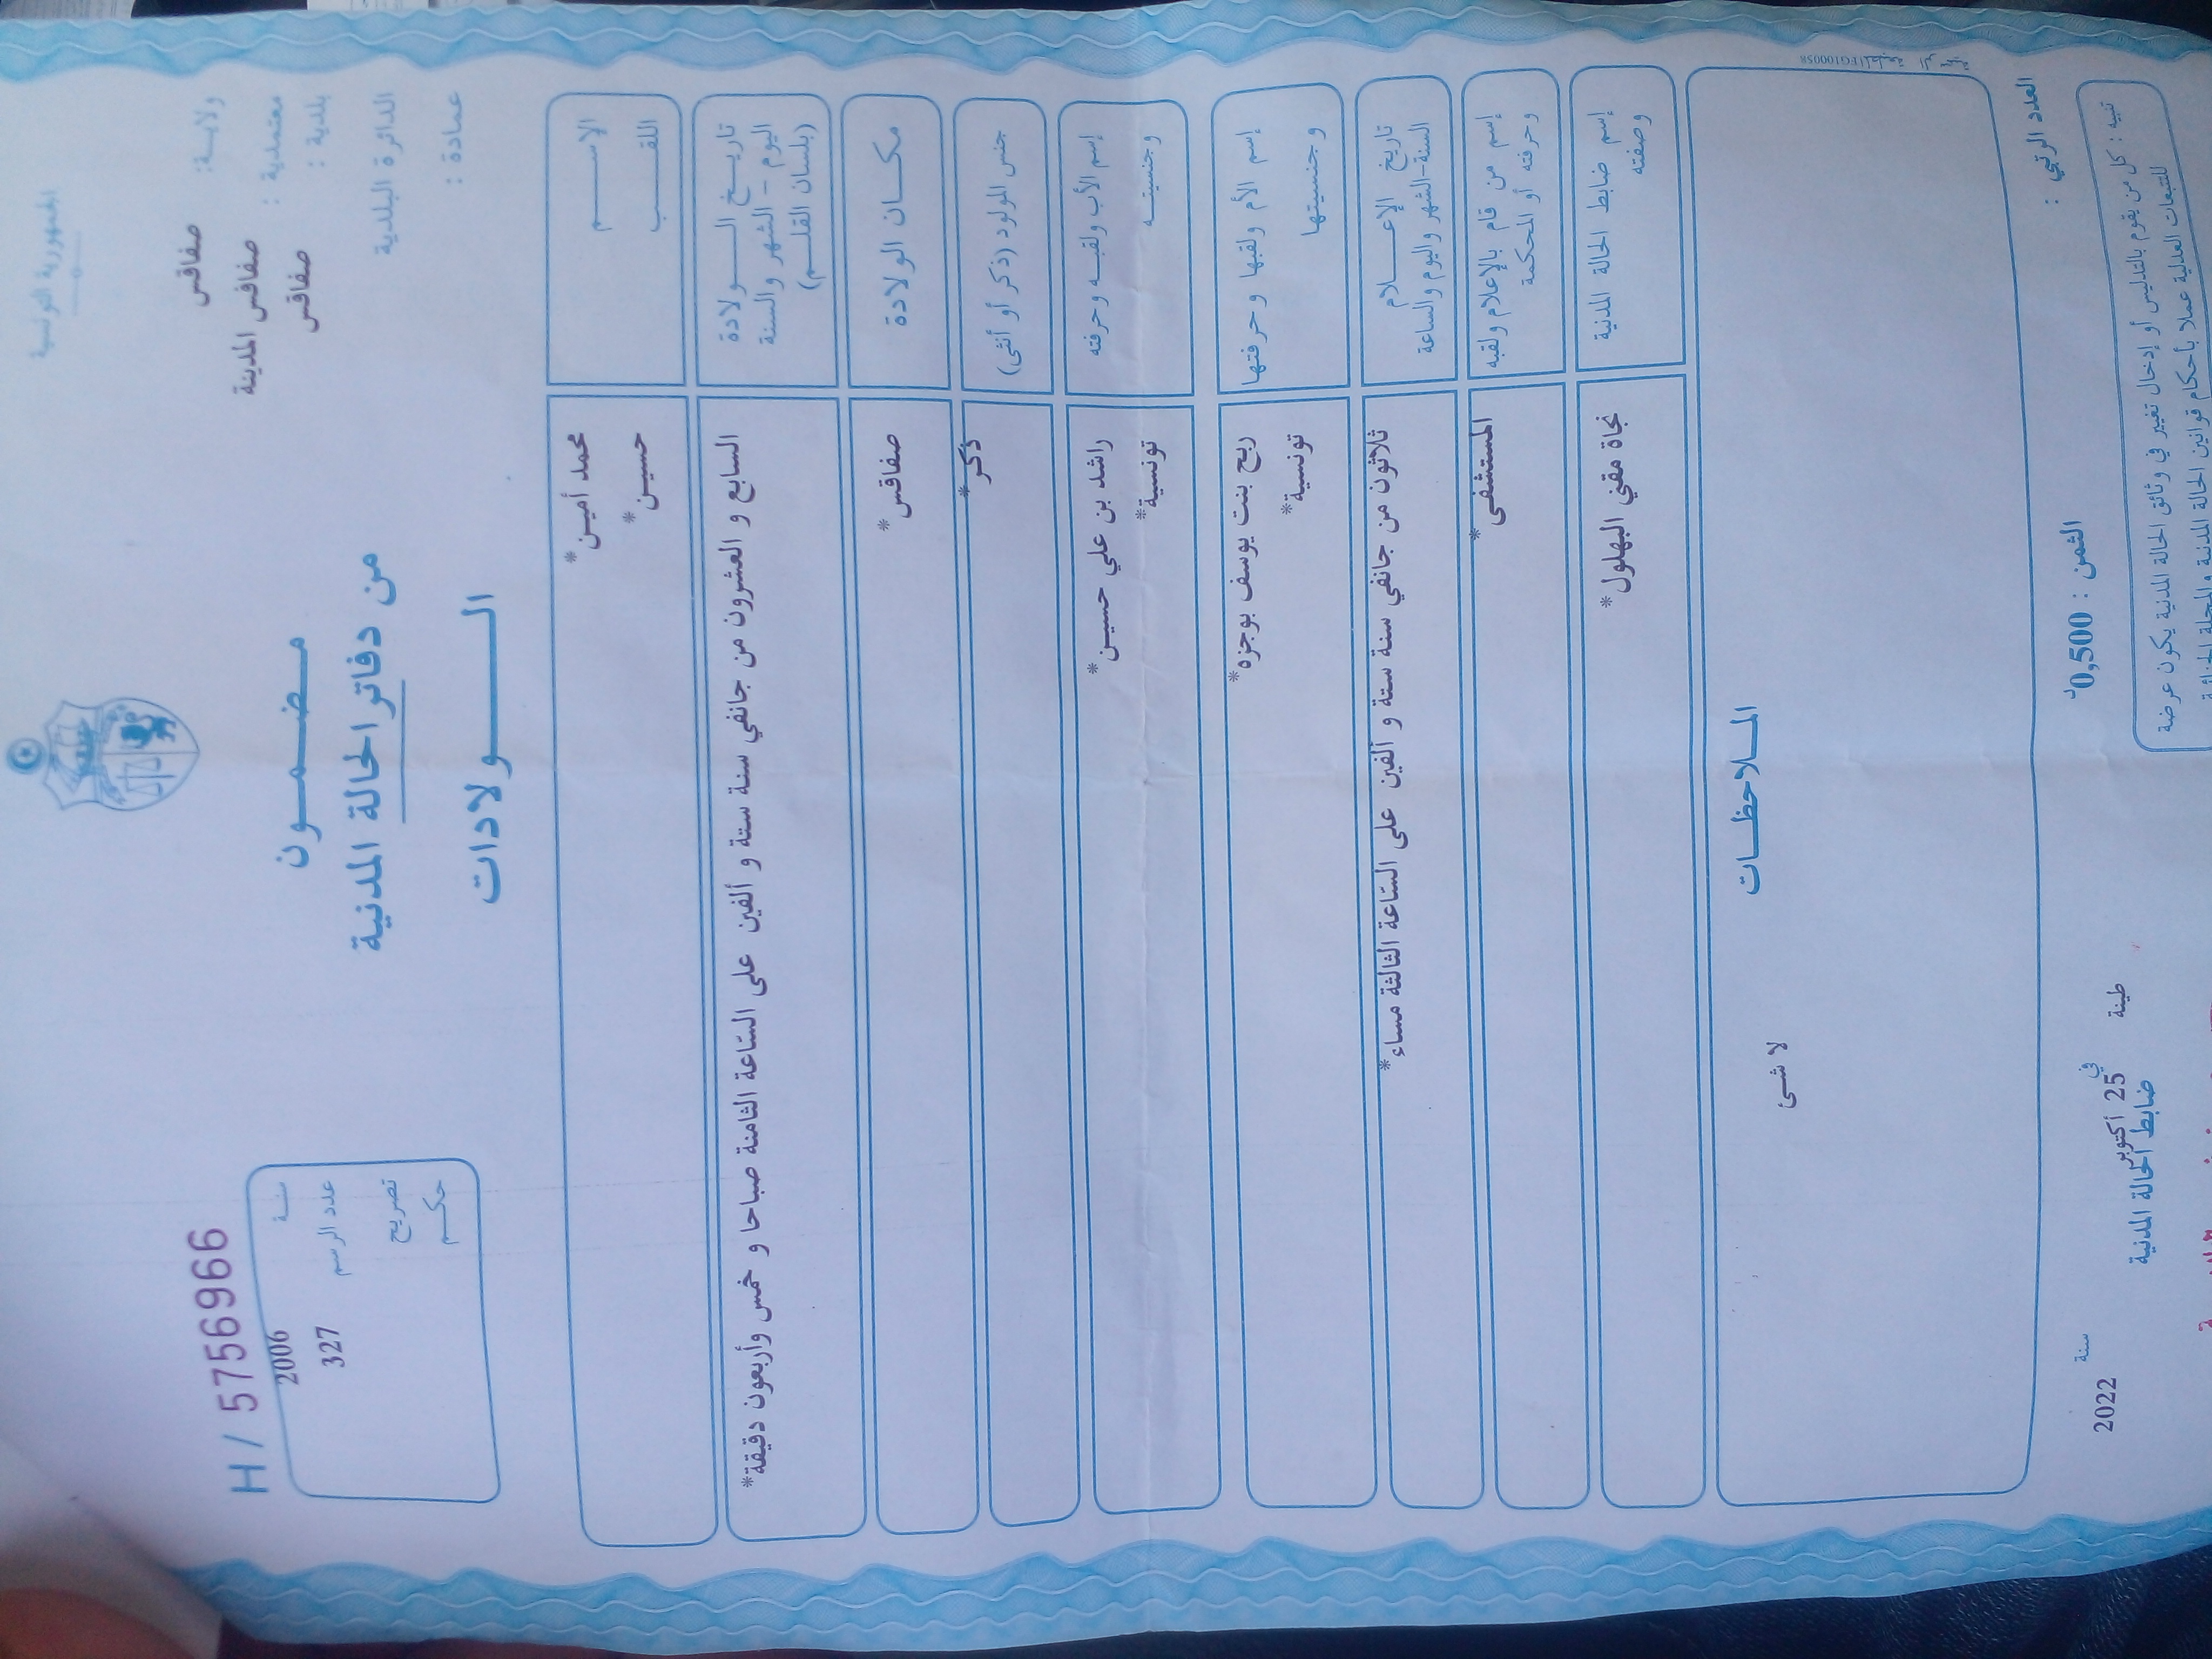 الجمهورية التونسية
ولايـــة: صفاقس
معتمدية : صفاقس المدينة
بلدية : صفاقس
الدائرة البلدية
عمادة :
مــضــمــــون
من دفاتر الحالة المدنية
الــــولادات
H / 5756966
سنـــة 2006
عدد الرسم 327
تصريح
حكـــم
الإســــــم محمد أميـن*
اللقــــــب حسيـن*
تاريـــخ الــــــولادة السابع و العشرون من جانفي سنة ستة و ألفين على السّاعة الثامنة صباحا و خمس وأربعون دقيقة*
اليوم - الشهر والسنة
(بلسان القلـــم)
مكــــان الولادة صفاقس*
جنس المولود (ذكر أو أنثى) ذكر*
إسم الأب ولقبـــه وحرفته راشد بن علي حسيـن*
وجنسيتـــه تونسية*
إسم الأم ولقبها وحرفتها ربح بنت يوسف بوجزه*
وجنسيتها تونسية*
تاريخ الإعــــلام ثلاثون من جانفي سنة ستة و ألفين على السّاعة الثالثة مساء*
السنة-الشهر واليوم والساعة
إسم من قام بالإعلام ولقبه المستشفى*
وحرفته أو المحكمة
إسم ضابط الحالة المدنية نجاة مقني البهلول*
وصفته
الملاحظــات
لا شئ
العدد الرتبي :
الثمن : 0,500د
طينة في 25 أكتوبر سنة 2022
ضابط الحالة المدنية
تنبيه : كل من يقوم بالتدليس أو إدخال تغيير في وثائق الحالة المدنية يكون عرضة
للتتبعات العدلية عملا بأحكام قوانين الحالة المدنية والمجلة الجزائية